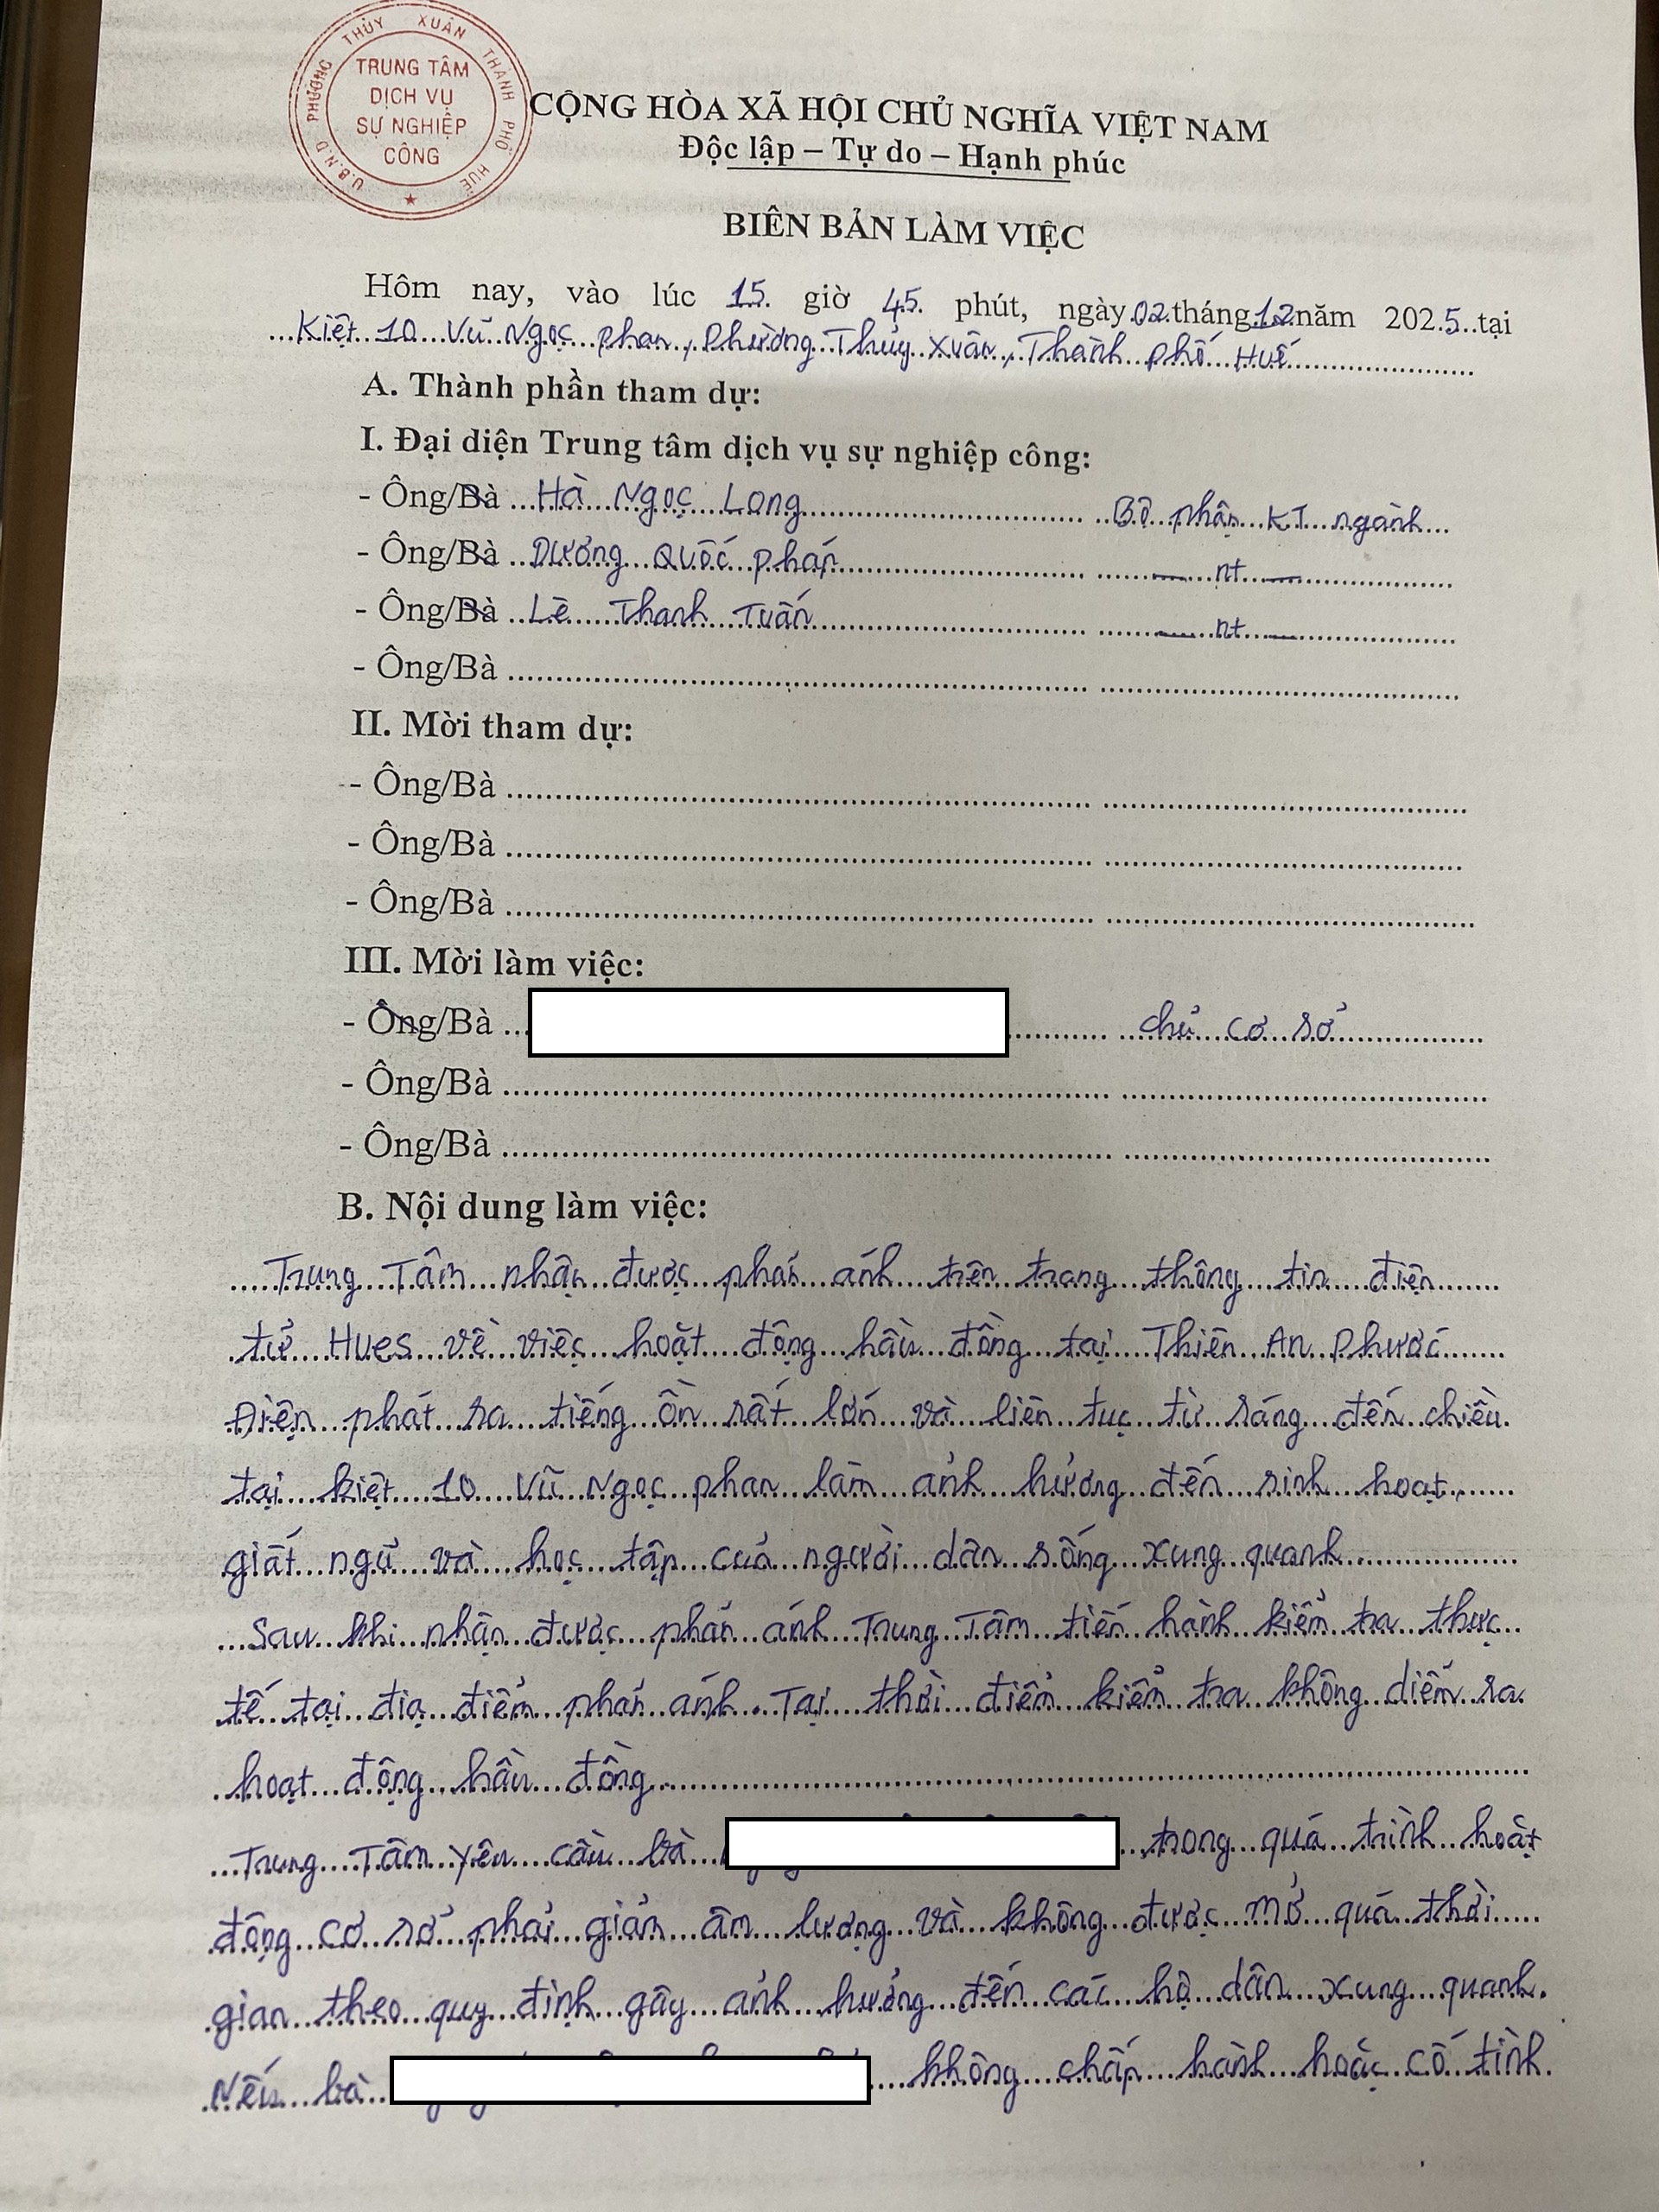 U.B.N.D PHƯỜNG THỦY XUÂN THÀNH PHỐ HUẾ
TRUNG TÂM
DỊCH VỤ
SỰ NGHIỆP
CÔNG
CỘNG HÒA XÃ HỘI CHỦ NGHĨA VIỆT NAM
Độc lập – Tự do – Hạnh phúc
BIÊN BẢN LÀM VIỆC
Hôm nay, vào lúc 15 giờ 45 phút, ngày 02 tháng 12 năm 2025 tại
Kiệt 10 Vũ Ngọc Phan, Phường Thủy Xuân, Thành Phố Huế
A. Thành phần tham dự:
I. Đại diện Trung tâm dịch vụ sự nghiệp công:
- Ông/Bà Hà Ngọc Long Bộ phận KT ngành
- Ông/Bà Dương Quốc Phán nt
- Ông/Bà Lê Thanh Tuấn nt
- Ông/Bà
II. Mời tham dự:
- Ông/Bà
- Ông/Bà
- Ông/Bà
III. Mời làm việc:
- Ông/Bà chủ cơ sở
- Ông/Bà
- Ông/Bà
B. Nội dung làm việc:
Trung Tâm nhận được phản ánh trên trang thông tin điện
tử Hues về việc hoạt động hầu đồng tại Thiên An Phước
Điện phát ra tiếng ồn rất lớn và liên tục từ sáng đến chiều
tại kiệt 10 Vũ Ngọc Phan làm ảnh hưởng đến sinh hoạt,
giất ngủ và học tập của người dân sống xung quanh
Sau khi nhận được phản ánh Trung Tâm tiến hành kiểm tra thực
tế tại địa điểm phản ánh. Tại thời điểm kiểm tra không diễn ra
hoạt động hầu đồng
Trung Tâm yêu cầu bà trong quá trình hoạt
động cơ sở phải giảm âm lượng và không được mở quá thời
gian theo quy định gây ảnh hưởng đến các hộ dân xung quanh.
Nếu bà không chấp hành hoặc cố tình